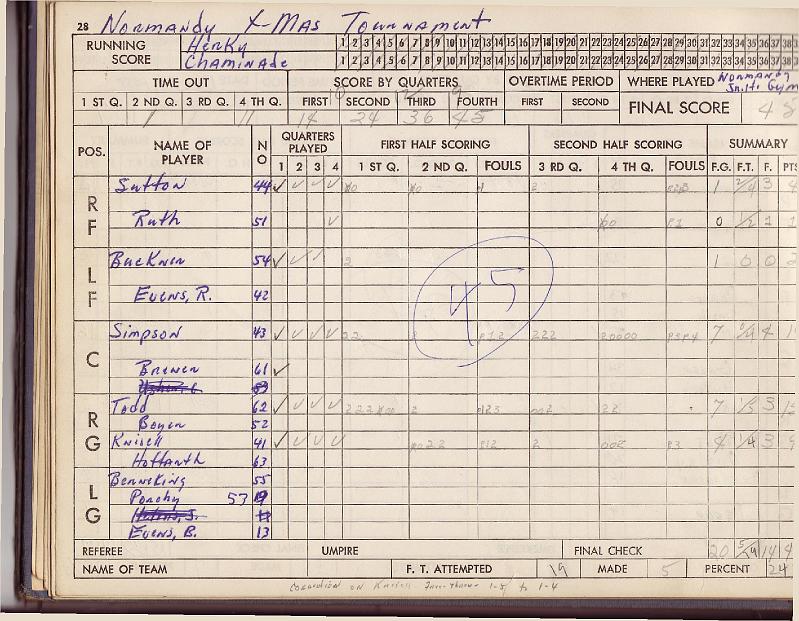 28 Normandy X-Mas Tournament
RUNNING SCORE
Herky 1 2 3 4 5 6 7 8 9 10 11 12 13 14 15 16 17 18 19 20 21 22 23 24 25 26 27 28 29 30 31 32 33 34 35 36 37 38
Chaminade 1 2 3 4 5 6 7 8 9 10 11 12 13 14 15 16 17 18 19 20 21 22 23 24 25 26 27 28 29 30 31 32 33 34 35 36 37 38
TIME OUT SCORE BY QUARTERS OVERTIME PERIOD WHERE PLAYED Normandy Jr. Hi. Gym
1 ST Q. 2 ND Q. 3 RD Q. 4 TH Q. FIRST SECOND THIRD FOURTH FIRST SECOND FINAL SCORE 45
1 11 14 24 36 45
POS. NAME OF PLAYER NO QUARTERS PLAYED FIRST HALF SCORING SECOND HALF SCORING SUMMARY
1 2 3 4 1 ST Q. 2 ND Q. FOULS 3 RD Q. 4 TH Q. FOULS F.G. F.T. F. PTS
RF
Sutton 44 2 1 2/4 3 4
Ruth 51 0 1/2 1 1
LF
Buckner 54 2 1 0 0 2
Evens, R. 42
45
C
Simpson 43 22 2 P12 222 7 4
Brewer 61
RG
Todd 62 2 22 7 1/3 3
Boyer 52
Knisell 41 2 4 1/4 3 9
Hoffarth 63
LG
Benneking 55
Porchy 53
Evens, B. 13
REFEREE UMPIRE FINAL CHECK 20 5/19 14
NAME OF TEAM F. T. ATTEMPTED 19 MADE 5 PERCENT 24
Correction on Knisell Free-throw- 1-5 to 1-4